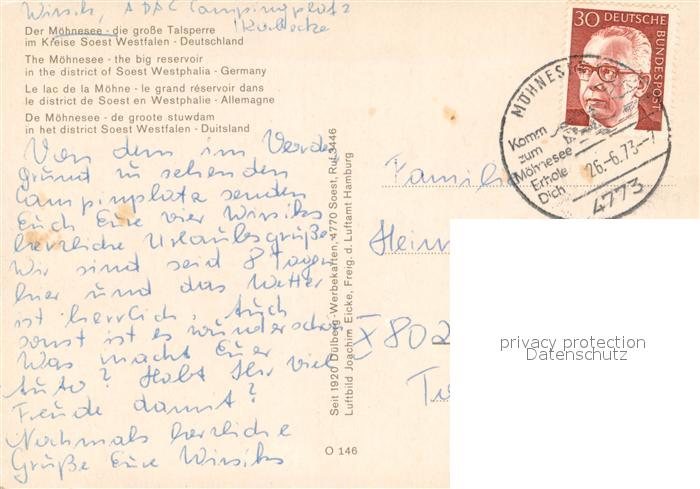 Wirsiks, ADAC Campingplatz
Körbecke
Der Möhnesee - die große Talsperre
im Kreise Soest Westfalen - Deutschland
The Möhnesee - the big reservoir
in the district of Soest Westphalia - Germany
Le lac de la Möhne - le grand réservoir dans
le district de Soest en Westphalie - Allemagne
De Möhnesee - de groote stuwdam
in het district Soest Westfalen - Duitsland
Von dem im Vorder
grund zu sehenden
Campinplatz senden
Euch Eure vier Wirsiks
herzliche Urlaubsgrüße
Wir sind seid 8 Tagen
hier und das Wetter
ist herrlich. Auch
sonst ist es wunderschön
Was macht Euer
Auto? Habt Ihr viel
Freude damit?
Nochmals herzliche
Grüße Eure Wirsiks
Seit 1920 Dülberg-Werbekarten, 4770 Soest, Ruf 3446
Luftbild Joachim Eicke, Freig. d. Luftamt Hamburg
O 146
30 DEUTSCHE
BUNDESPOST
MÖHNESEE
Komm
zum
Möhnesee
Erhole
Dich
26.-6.73.--7
4773
Familie
Hein
X802
privacy protection
Datenschutz